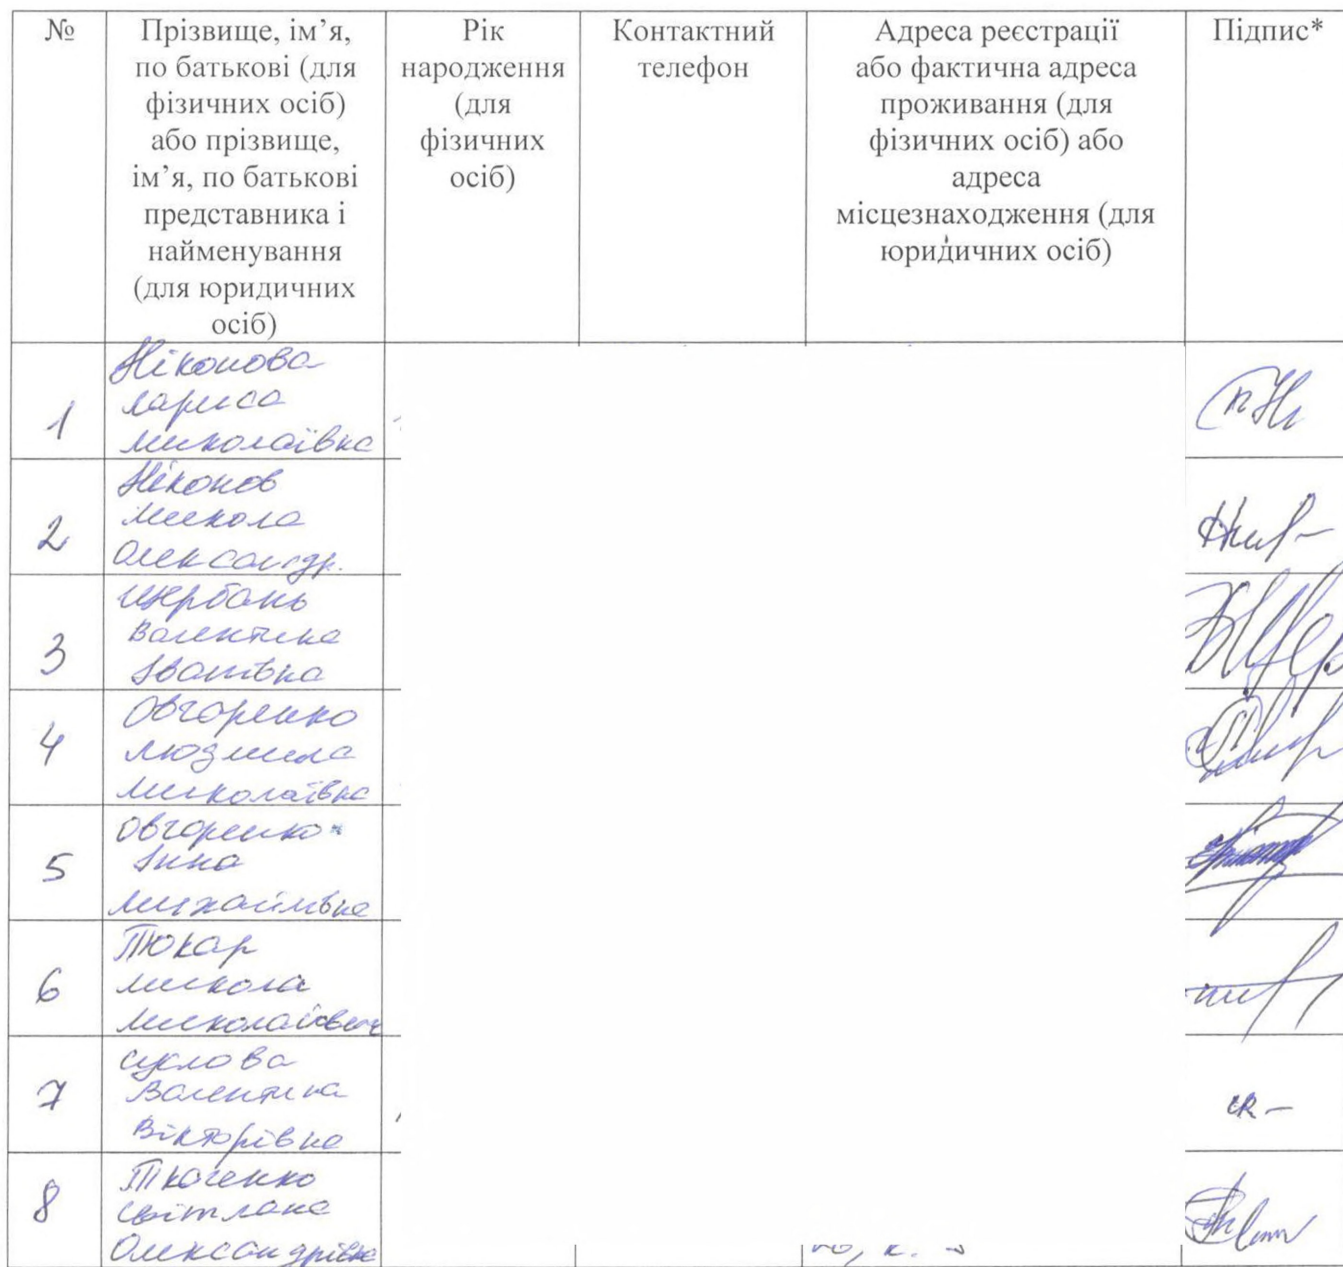 №
Прізвище, ім’я,
по батькові (для
фізичних осіб)
або прізвище,
ім’я, по батькові
представника і
найменування
(для юридичних
осіб)
Рік
народження
(для
фізичних
осіб)
Контактний
телефон
Адреса реєстрації
або фактична адреса
проживання (для
фізичних осіб) або
адреса
місцезнаходження (для
юридичних осіб)
Підпис*
1
Ніконова
Лариса
Миколаївна
2
Ніконов
Микола
Олександр.
3
Щербань
Валентина
Іванівна
4
Овчаренко
Людмила
Миколаївна
5
Овчаренко
Інна
Михайлівна
6
Токар
Микола
Миколайович
7
Суслова
Валентина
Вікторівна
8
Ткаченко
Світлана
Олександрівна